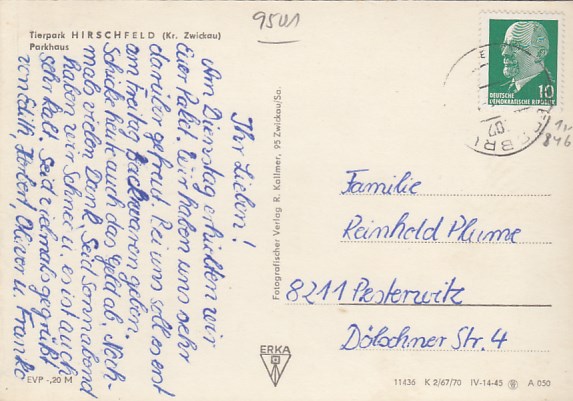 9501
Tierpark HIRSCHFELD (Kr. Zwickau)
Parkhaus
Ihr Lieben!
Am Dienstag erhielten wir
Euer Paket. Wir haben uns sehr
darüber gefreut. Bei uns soll es erst
am Freitag Backwaren geben.
Schicke heute auch das Geld ab. Noch-
mals vielen Dank. Seit Sonnabend
haben wir Schnee u. es ist auch
sehr kalt. Seid vielmals gegrüßt
von Edith, Herbert, Oliver u. Franko
EVP -,20 M
Fotografischer Verlag R. Kallmer, 95 Zwickau/Sa.
ERKA
10
DEUTSCHE
DEMOKRATISCHE REPUBLIK
Familie
Reinhold Plume
8211 Pesterwitz
Dölzschner Str. 4
11436 K 2/67/70 IV-14-45 A 050